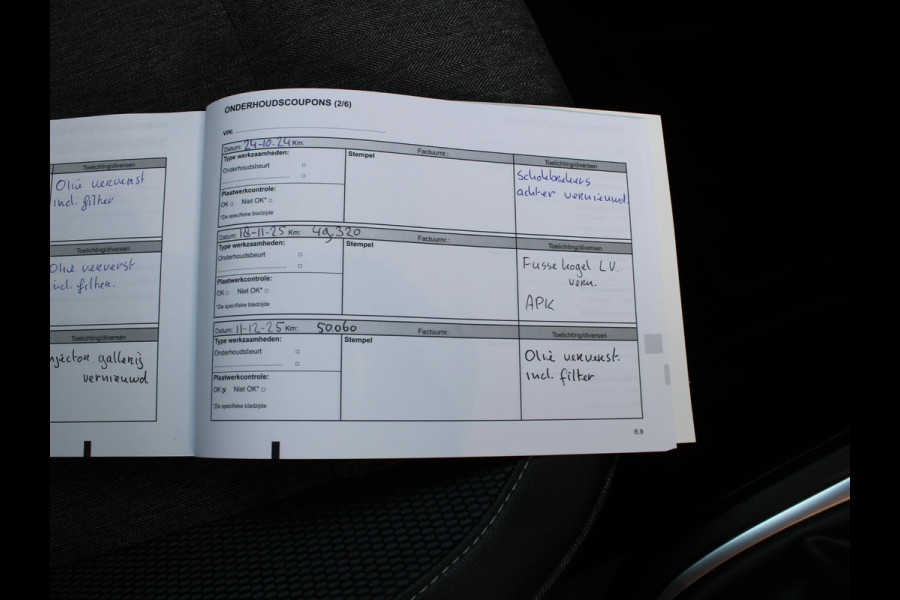 Toelichting/diversen
Olie ververst
incl. filter
Toelichting/diversen
Olie ververst
incl. filter.
Toelichting/diversen
njector gallerij
vernieuwd
ONDERHOUDSCOUPONS (2/6)
VIN:
Datum: 24-10-24 Km: Factuurnr.: Toelichting/diversen
Type werkzaamheden:
Onderhoudsbeurt
Plaatwerkcontrole:
OK Niet OK*
*Zie specifieke bladzijde
Stempel
Schokbrekers
achter vernieuwd
Datum: 18-11-25 Km: 49.320 Factuurnr.: Toelichting/diversen
Type werkzaamheden:
Onderhoudsbeurt
Plaatwerkcontrole:
OK Niet OK*
*Zie specifieke bladzijde
Stempel
Fusee kogel L.V.
vern.
APK
Datum: 11-12-25 Km: 50.060 Factuurnr.: Toelichting/diversen
Type werkzaamheden:
Onderhoudsbeurt
Plaatwerkcontrole:
OK Niet OK*
*Zie specifieke bladzijde
Stempel
Olie ververst.
incl. filter
6.9